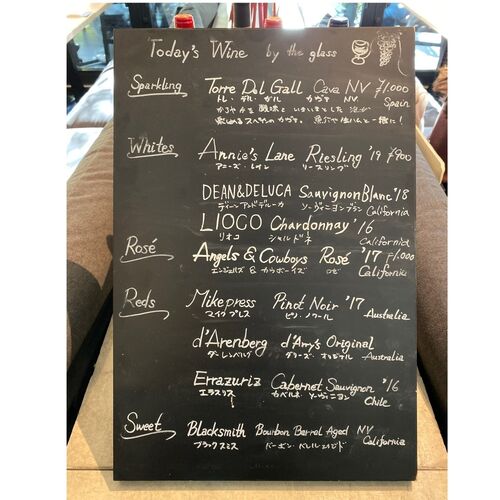 Today's Wine by the glass
Sparkling Torre Del Gall Cava NV ¥1,000
トレ・デル・ガル カヴァ NV. Spain
かろやかな酸味と いきいきとした 泡が
楽しめるスペインのカヴァ。魚介や生ハムと一緒に！
Whites Annie's Lane Riesling '19 ¥900
アニーズ・レイン リースリング
DEAN&DELUCA Sauvignon Blanc '18
ディーンアンドデルーカ ソーヴィニヨンブラン California
LIOCO Chardonnay '16
リオコ シャルドネ California
Rosé Angels & Cowboys Rosé '17 ¥1,000
エンジェルズ & カウボーイズ ロゼ California
Reds Mikepress Pinot Noir '17
マイクプレス ピノ・ノワール Australia
d'Arenberg d'Arry's Original
ダーレンベルグ ダリーズ・オリジナル Australia
Errazuriz Cabernet Sauvignon '16
エラスリス カベルネ・ソーヴィニヨン Chile
Sweet Blacksmith Bourbon Barrel Aged NV
ブラックスミス バーボン・バレルエイジド California